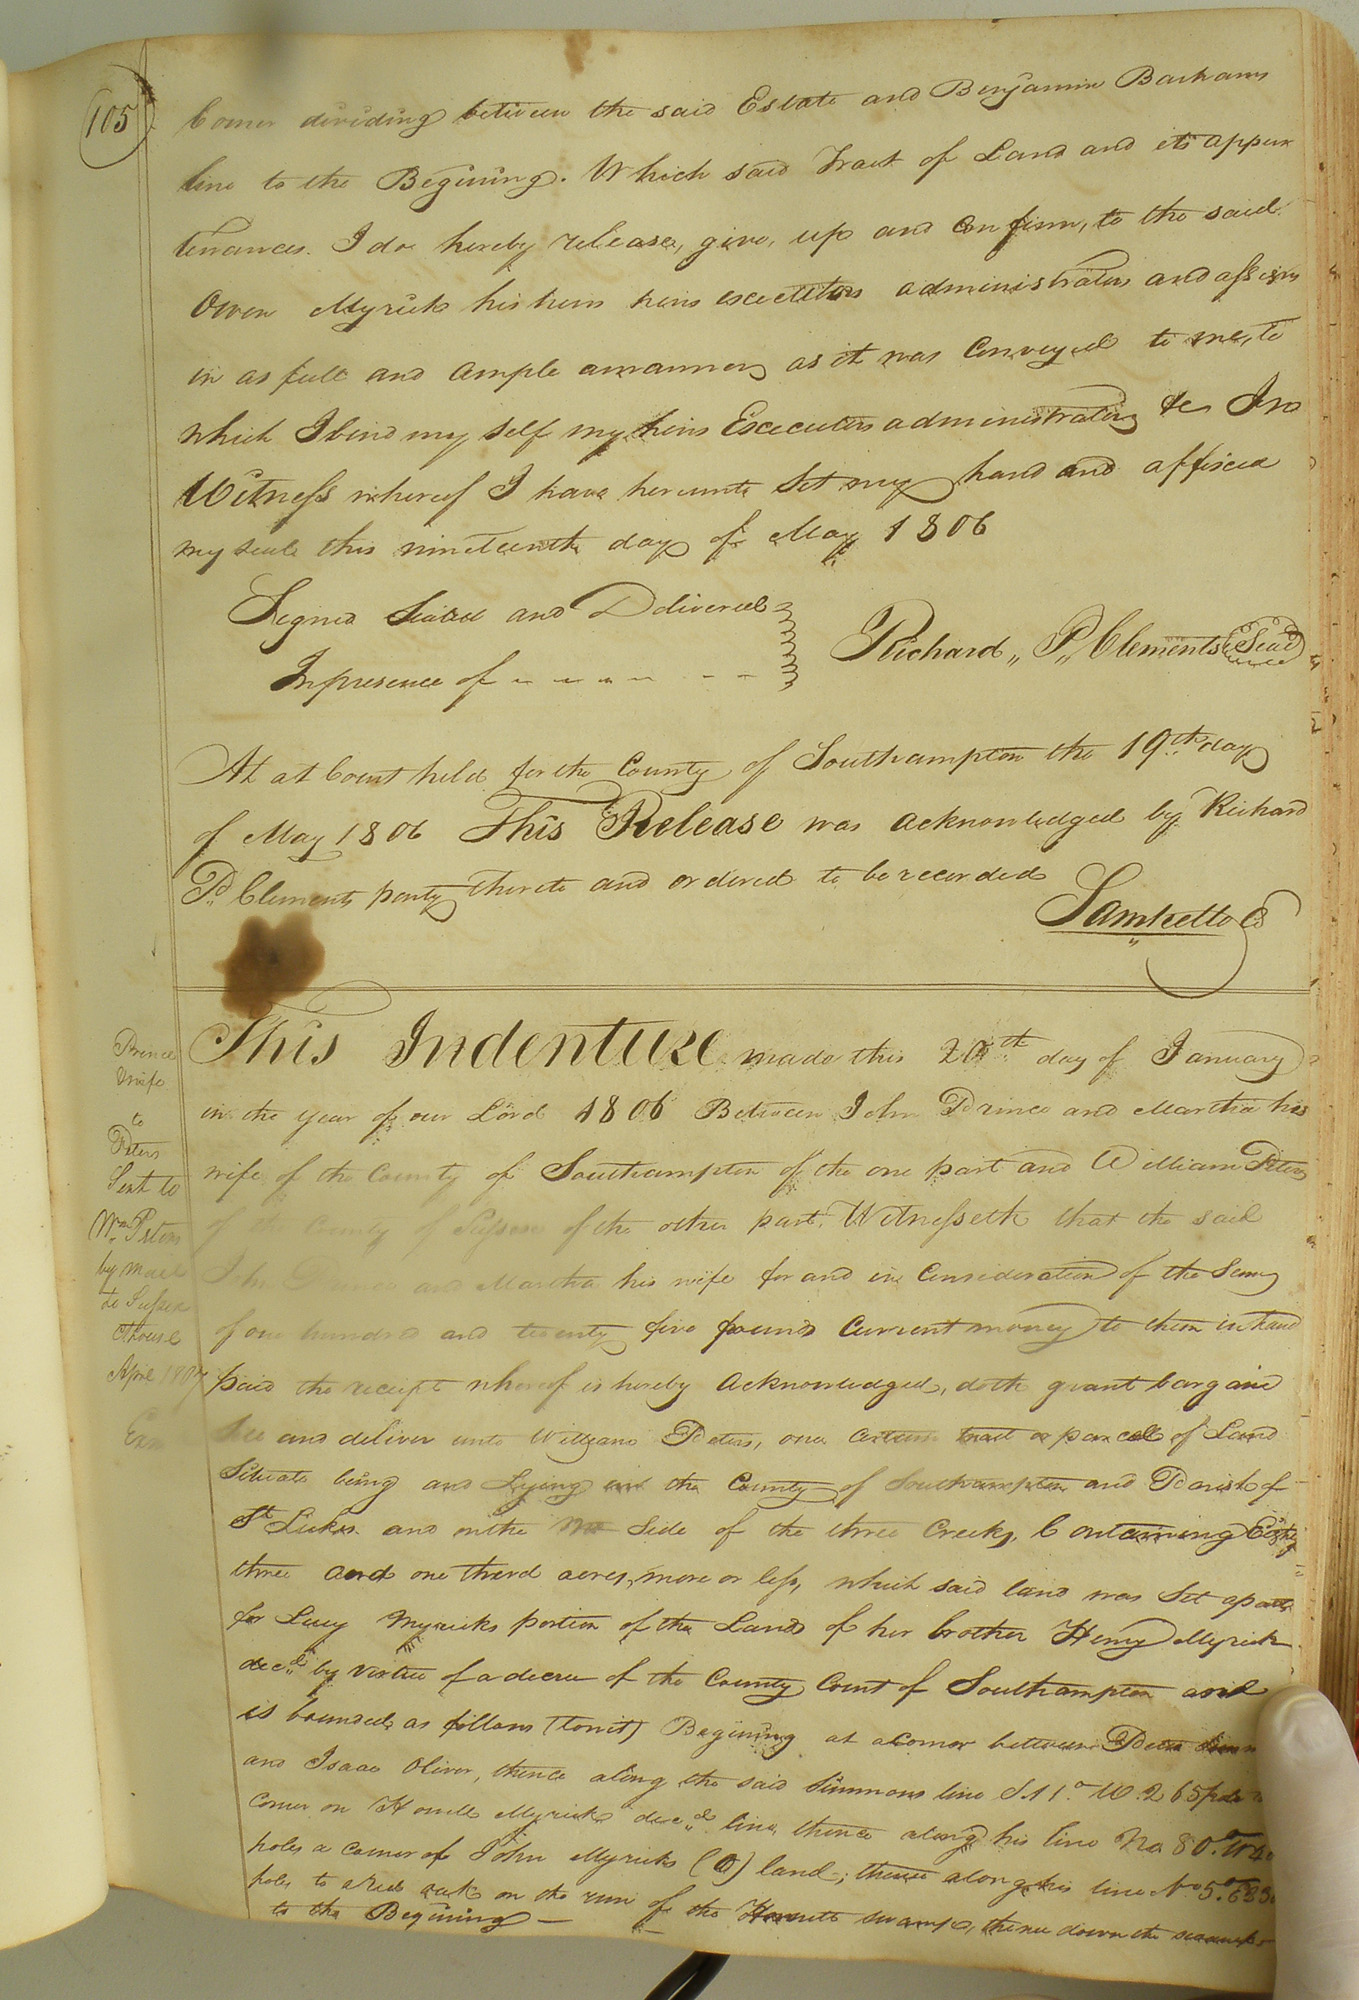 105
Corner dividing between the said Estate and Benjamin Barhams
line to the Begining. Which said Tract of Land and its appur
tenances. I do hereby release, give, up and Confirm, to the said
Owen Myrick his heirs executors administrators and assigns
in as full and ample amanner as it was Conveyed to me, to
which I bind my self my heirs Executors administrators &c In
Witness whereof I have hereunto Set my hand and affixed
my seale this nineteenth day of May 1806
Signed Sealed and Delivered
Inpresence of
Richard P. Clements Seal
At at Court held for the County of Southampton the 19th day
of May 1806 This Release was acknowledged by Richard
P. Clements party thereto and ordered to be recorded
Saml Kello C
Prince
Wife
to
Peters
Sent to
Wm Peters
by mail
to Sussex
Cthouse
April 1807
Exm
This Indenture made this 20th day of January
in the year of our Lord 1806 Between John Prince and Martha his
wife of the County of Southampton of the one part and William Peters
of the County of Sussex of the other part. Witnesseth that the said
John Prince and Martha his wife for and in Consideration of the Sum
of one hundred and twenty five pounds Current money to them in hand
paid the receipt whereof is hereby acknowledged, doth grant bargain
and deliver unto William Peters, one Certain tract or parcell of Land
Situate being and Lying in the County of Southampton and Parish of
St Lukes and on the Side of the three Creeks, Containing Eighty
three and one third acres, more or less, which said land was Set apart
for Lucy Myricks portion of the Land of her brother Henry Myrick
decd by virtue of a decree of the County Court of Southampton and
is bounded as follows (towit) Begining at a Corner between Peter
and Isaac Oliver, thence along the said Simmons line S. 11° W. 265 poles
Corner on Howell Myrick decd line, thence along his line No 80° W
poles a corner of John Myricks (O) land; thence along his line No 5° E 330
poles to a Red oak on the run of the swamp, thence down the swamp
to the Begining